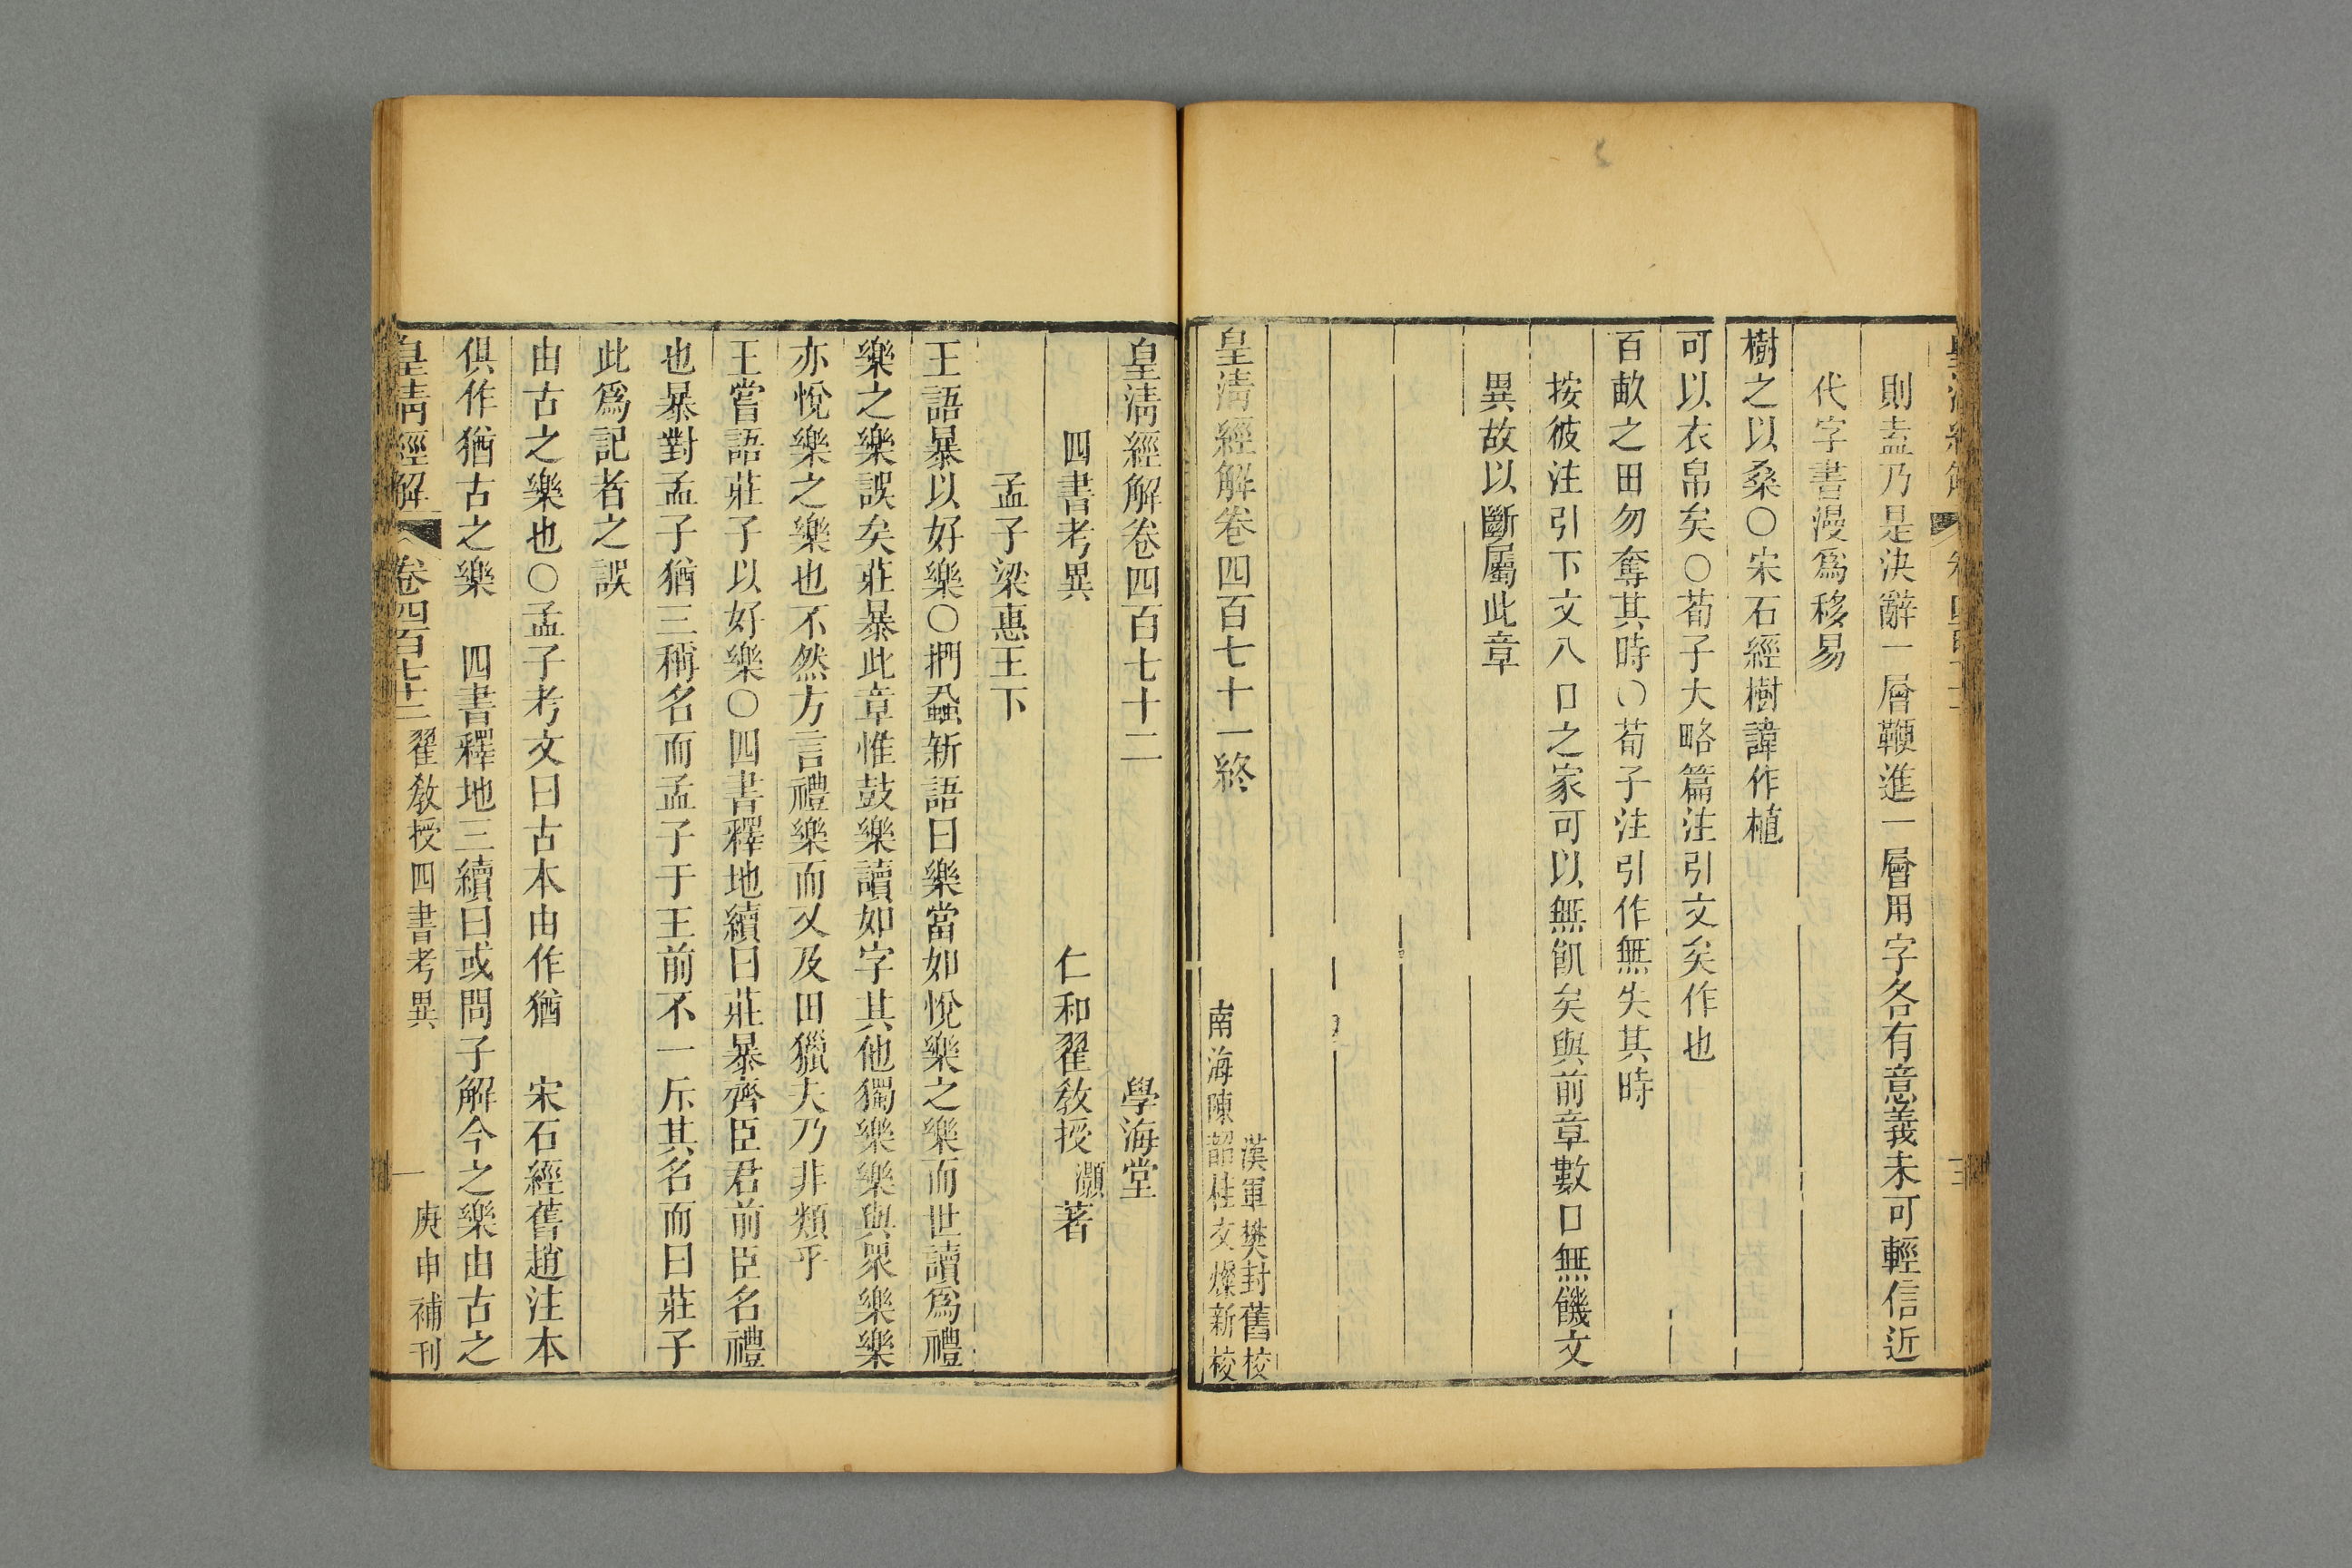 則盍乃是決辭一層鞭進一層用字各有意義未可輕信近
代字書漫爲移易
樹之以桑○宋石經樹諱作植
可以衣帛矣○荀子大略篇注引文矣作也
百畝之田勿奪其時○荀子注引作無失其時
按彼注引下文八口之家可以無飢矣與前章數口無饑文
異故以斷屬此章
皇淸經解卷四百七十一終
漢軍樊封舊校
南海陳韶桂文燦新校
皇淸經解卷四百七十二 學海堂
四書考異 仁和翟敎授灝著
孟子梁惠王下
王語暴以好樂○捫蝨新語曰樂當如悅樂之樂而世讀爲禮
樂之樂誤矣莊暴此章惟鼓樂讀如字其他獨樂樂與眾樂樂
亦悅樂之樂也不然方言禮樂而又及田獵夫乃非類乎
王嘗語莊子以好樂○四書釋地續曰莊暴齊臣君前臣名禮
也暴對孟子猶三稱名而孟子于王前不一斥其名而曰莊子
此爲記者之誤
由古之樂也○孟子考文曰古本由作猶 宋石經舊趙注本
俱作猶古之樂 四書釋地三續曰或問子解今之樂由古之
皇淸經解 卷四百七十二 翟敎授四書考異 一 庚申補刊